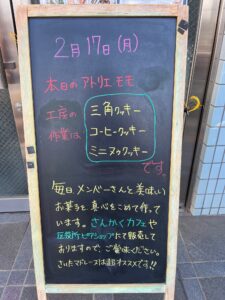 2月17日(月)
本日のアトリエ モモ
工房の
作業は
三角クッキー
コーヒークッキー
ミニヌックッキー
です。
毎日メンバーさんと美味しい
お菓子を真心をこめて作って
います。さんかくカフェや
区役所ピアショップにて販売して
おりますので、ご賞味ください。
さいたマドレーヌは超オススメです!!